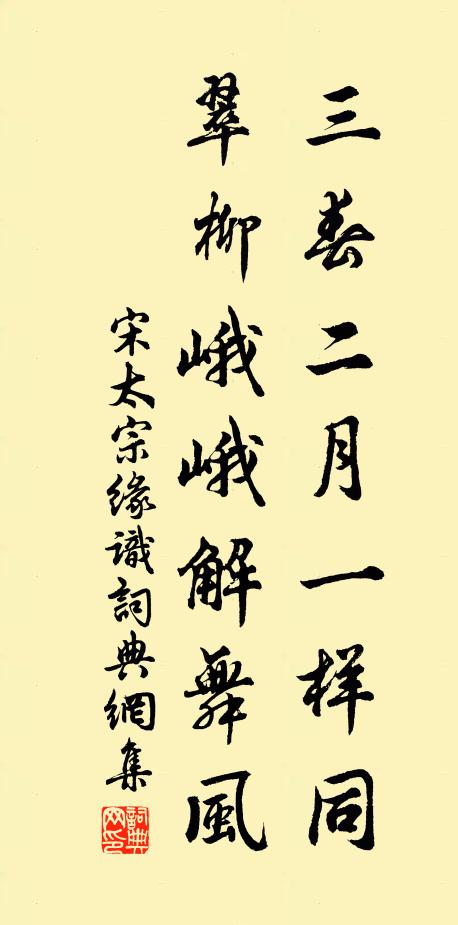 三春二月一样同
翠柳峨峨解舞風
宋太宗缘識詞典網集
詞典网印